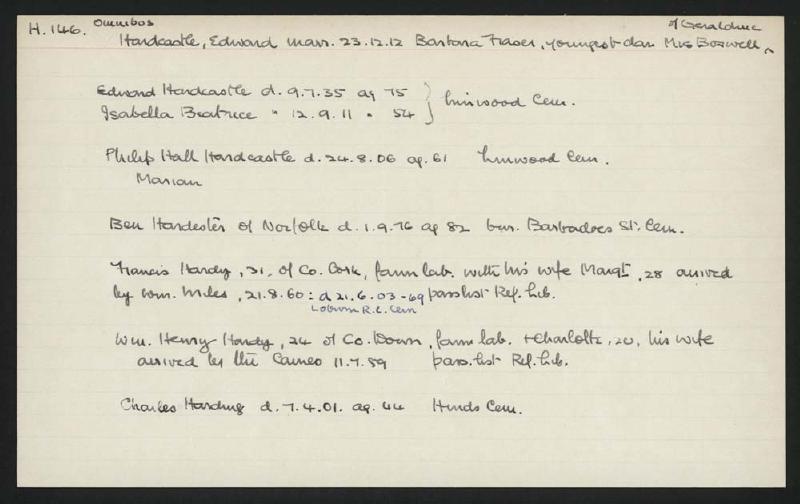 H.146. Omnibus of Geraldine
Hardcastle, Edward marr. 23.12.12 Barbara Fraser, youngest dau Mrs Boswell
Edward Hardcastle d. 9.7.35 ag 75
Isabella Beatrice " 12.9.11 " 54 } Linwood Cem.
Philip Hall Hardcastle d. 24.8.06 ag. 61 Linwood Cem.
Marian
Ben Hardester of Norfolk d. 1.9.76 ag 82 bur. Barbadoes St. Cem.
Francis Hardy, 31, of Co. Cork, farm lab. with his wife Margt, 28 arrived
by Wm. Miles, 21.8.60: d 21.6.03 - 69 pass list Ref. Lib.
Woburn R.C. Cem
Wm. Henry Hardy, 24 of Co. Down, farm lab. + Charlotte, 20, his wife
arrived by the Cameo 11.7.59 pass. list Ref. Lib.
Charles Harding d. 7.4.01. ag. 44 Hinds Cem.